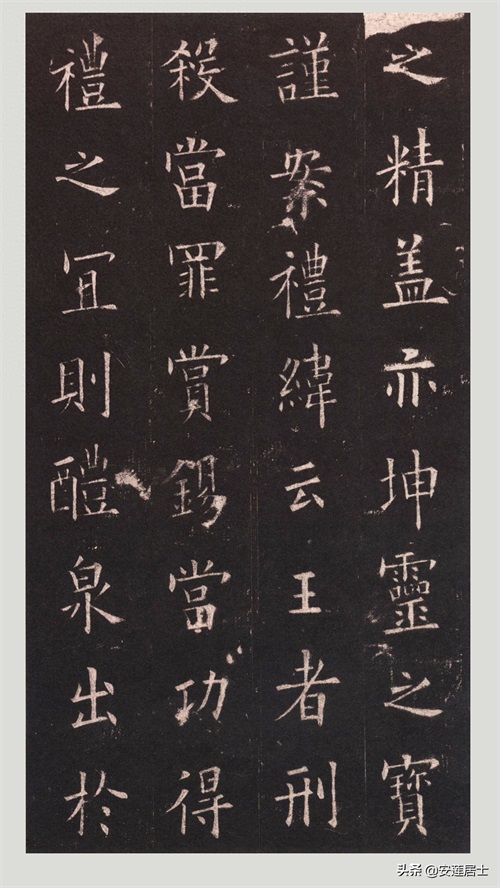 之精盖亦坤靈之寶
謹案禮緯云王者刑
殺當罪賞錫當功得
禮之冝則醴泉出於
头条 @安莲居士